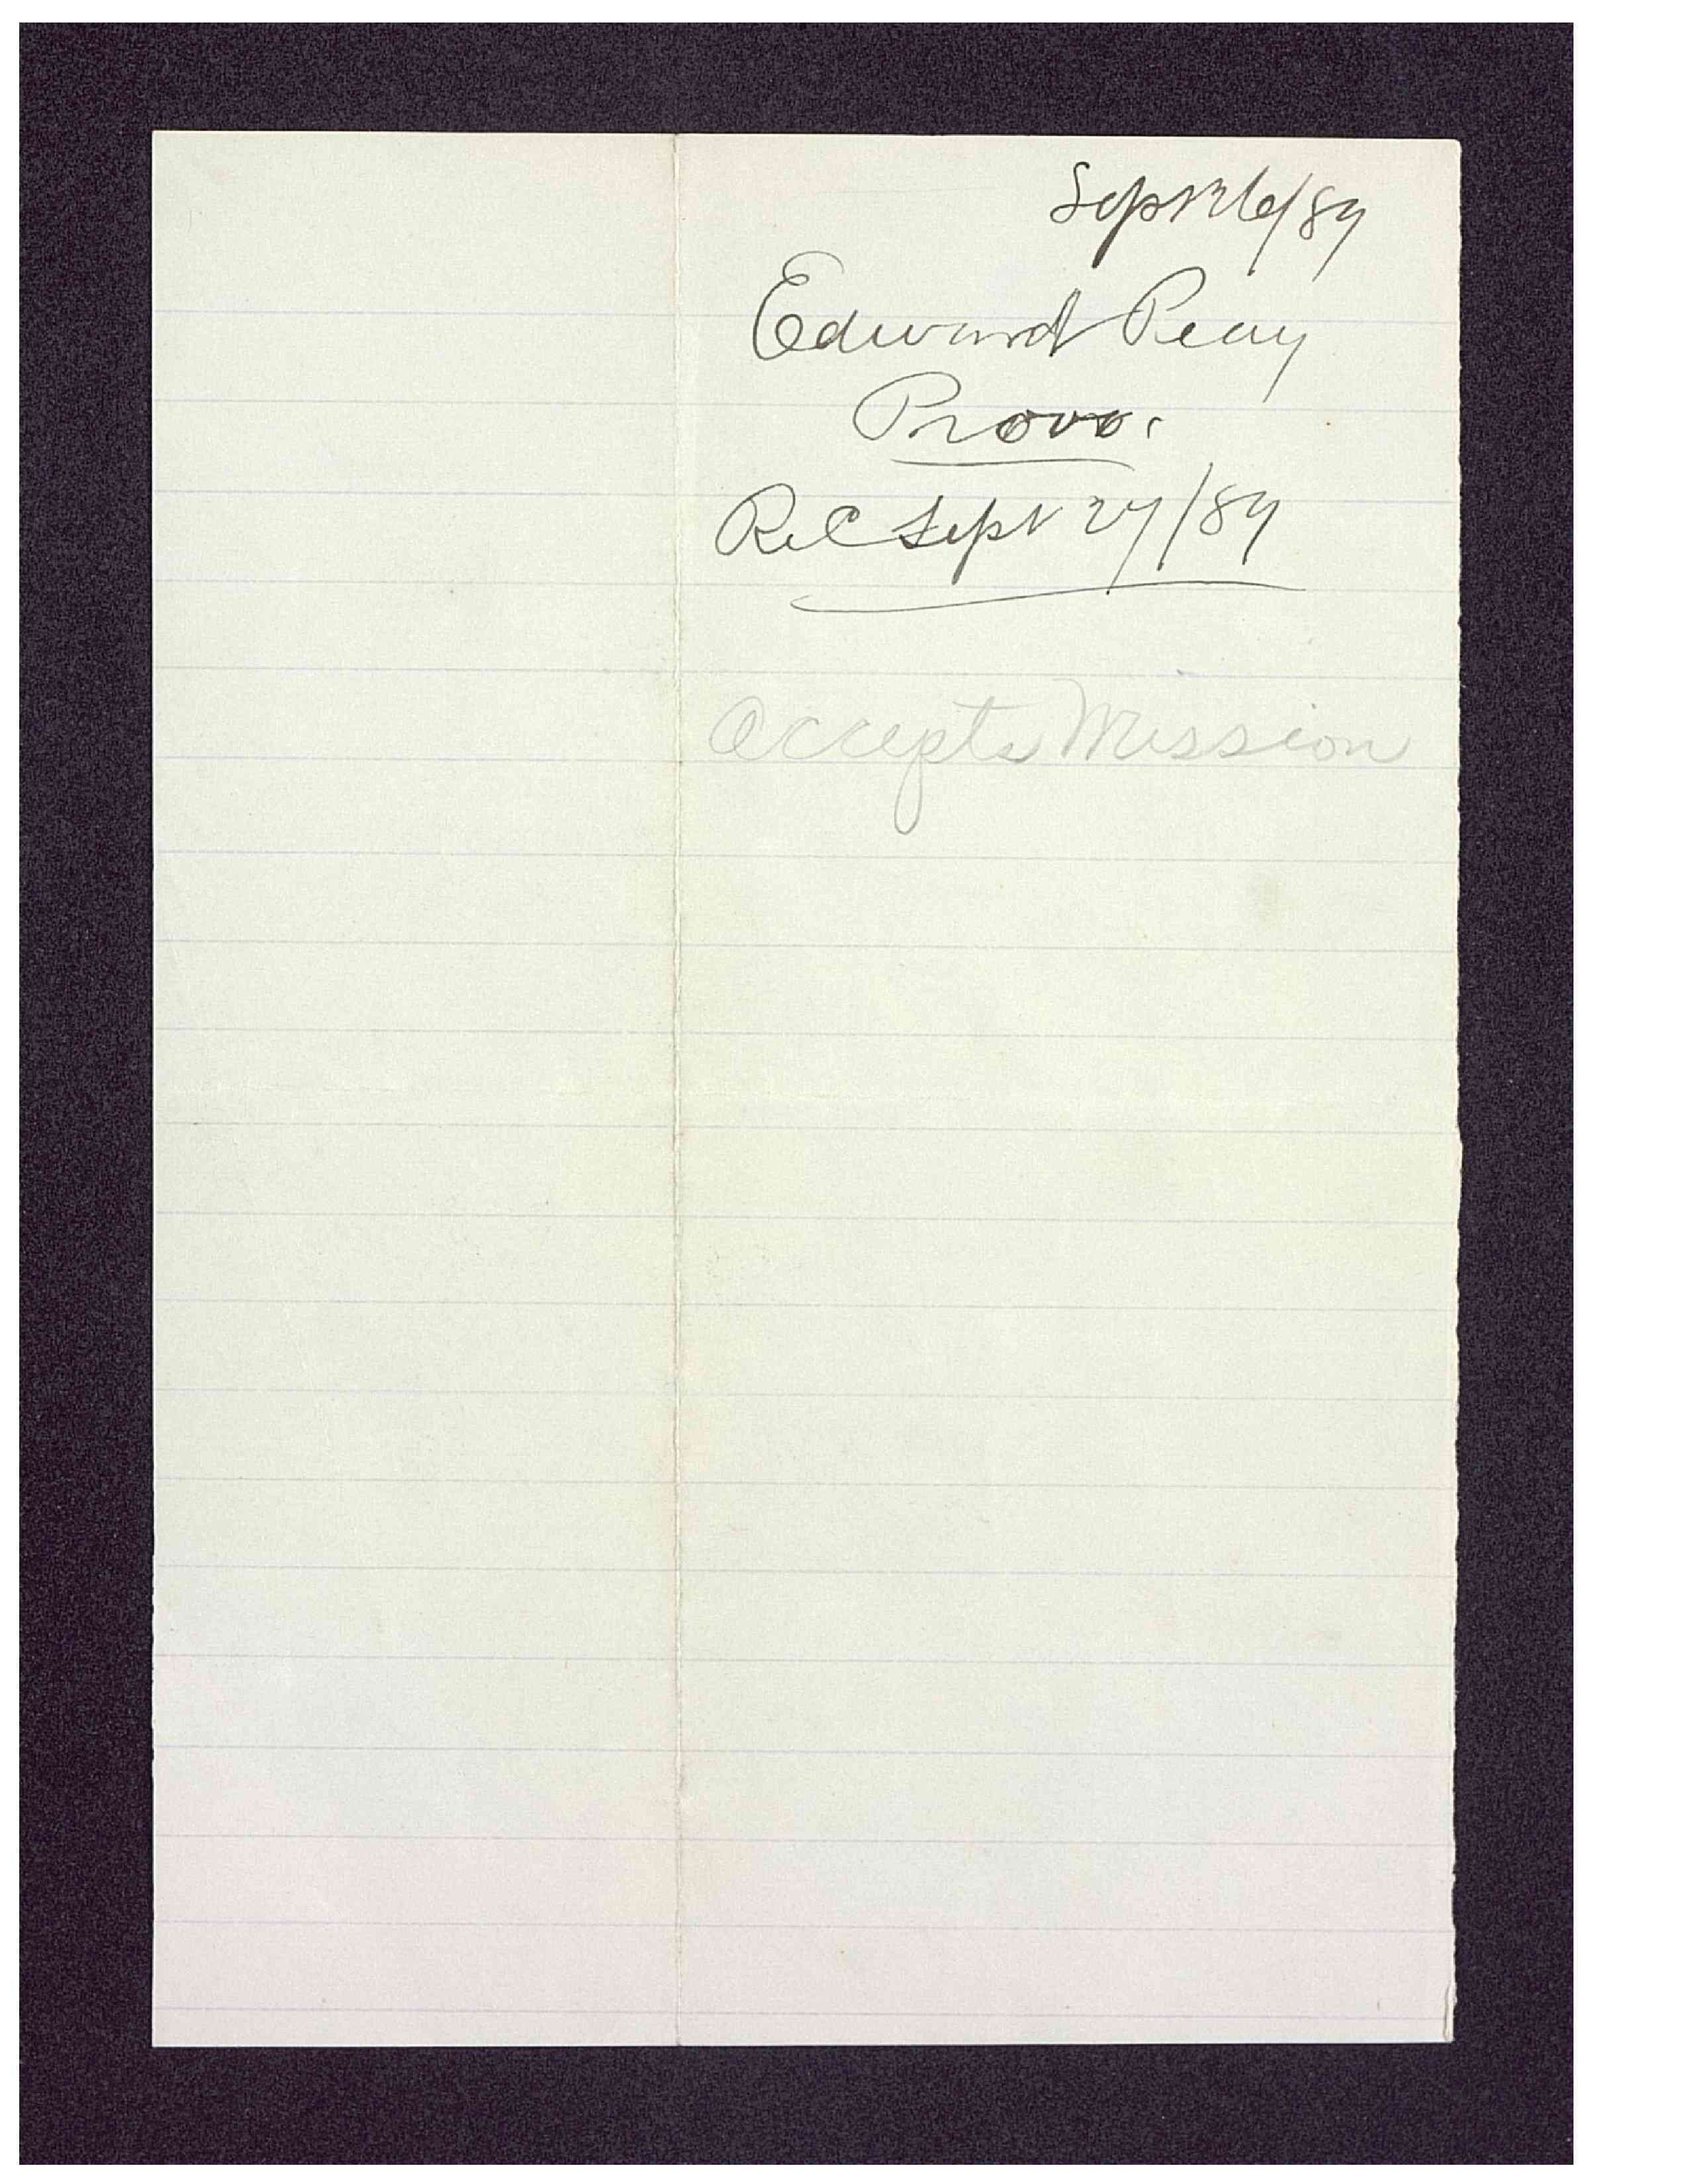 Sept 26/89
Edward Peay
Provo.
Rec Sept 27/89
Accepts Mission